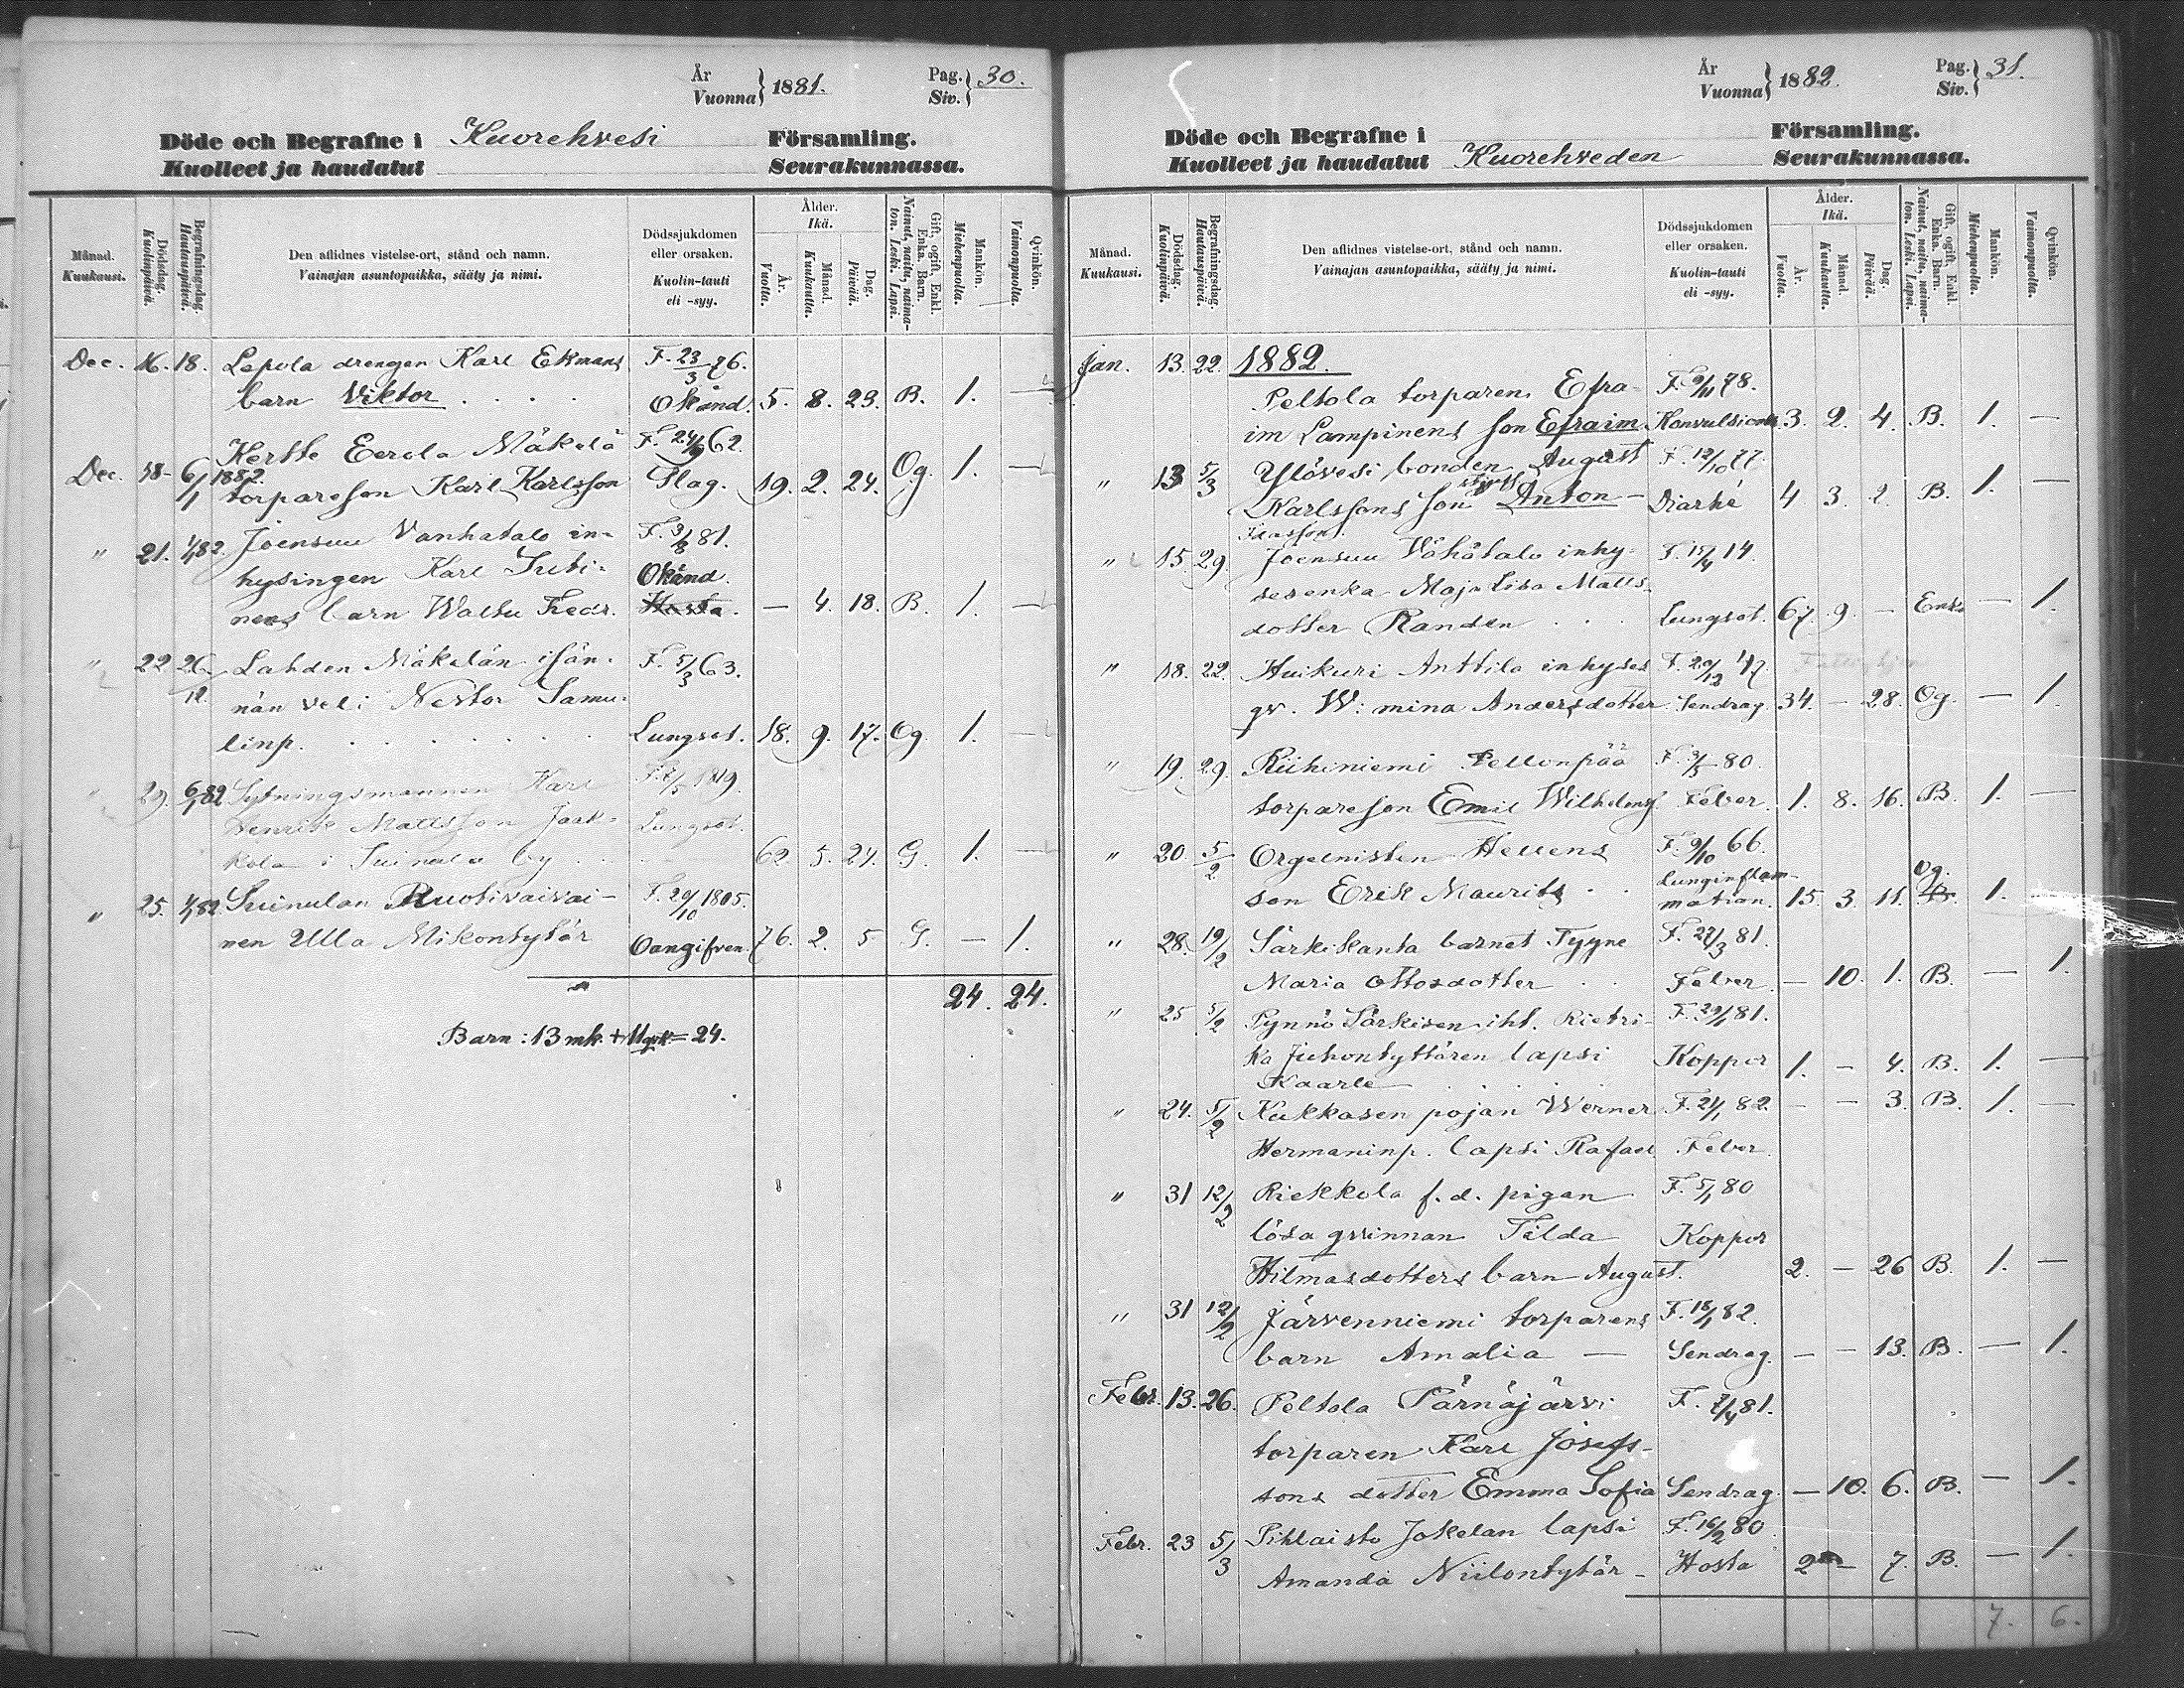 År
Vuonna } 1881.
Pag.
Siv. } 30.
Döde och Begrafne i Kuorehvesi Församling.
Kuolleet ja haudatut Seurakunnassa.
Månad. Kuukausi.
Dödsdag. Kuolinpäivä.
Begrafningsdag. Hautauspäivä.
Den aflidnes vistelse-ort, stånd och namn.
Vainajan asuntopaikka, sääty ja nimi.
Dödssjukdomen eller orsaken.
Kuolin-tauti eli -syy.
Ålder. Ikä.
År. Vuotta.
Månad. Kuukautta.
Dag. Päivää.
Gift, ogift, Enkl. Enka. Barn.
Nainut, naitu, naimaton. Leski. Lapsi.
Mankön. Miehenpuolta.
Qvinkön. Vaimonpuolta.
Dec. 16. 18. Lepola drengen Karl Ekmans F. 23/3 76.
barn Viktor . . . . Okänd. 5. 8. 23. B. 1. —
Kertte Eerola Mäkelä F. 24/9 62.
Dec. 18 6/1 1882. torpareson Karl Karlsson Slag. 19. 2. 24. Og. 1. —
" 21. 1/1 82. Joensuu Vanhatalo in- F. 3/8 81.
hysingen Karl Suti- Okänd.
nens barn Waltu Fredr. Hosta. — 4. 18. B. 1. —
" 22 26/12. Lahden Mäkelän isän- F. 5/3 63.
nän veli Nestor Samu-
linp. . . . . . . . Lungsot. 18. 9. 17. Og. 1. —
" 29. 6/1 82 Sytningsmannen Karl F. 7/5 1819.
Henrik Mattsson Jaak- Lungsot.
kola i Suinula by . . 62. 5. 24. G. 1. —
" 25. 1/1 82. Suinulan Ruotivaivai- F. 20/10 1805.
nen Ulla Mikontytär Oangifven. 76. 2. 5 G. — 1.
24. 24.
Barn: 13 mk. + 11 qvk. = 24.
År
Vuonna } 1882.
Pag.
Siv. } 31.
Döde och Begrafne i Församling.
Kuolleet ja haudatut Kuorehveden Seurakunnassa.
Månad. Kuukausi.
Dödsdag. Kuolinpäivä.
Begrafningsdag. Hautauspäivä.
Den aflidnes vistelse-ort, stånd och namn.
Vainajan asuntopaikka, sääty ja nimi.
Dödssjukdomen eller orsaken.
Kuolin-tauti eli -syy.
Ålder. Ikä.
År. Vuotta.
Månad. Kuukautta.
Dag. Päivää.
Gift, ogift, Enkl. Enka. Barn.
Nainut, naitu, naimaton. Leski. Lapsi.
Mankön. Miehenpuolta.
Qvinkön. Vaimonpuolta.
Jan. 13. 22. 1882.
Peltola torparen Efra- F. 9/11 78.
im Lampinens son Efraim Konvulsioner 3. 2. 4. B. 1. —
" 13 5/3 Ylövesi bonden August F. 12/10 77.
Karlssons son Anton — Diarhé 4 3. 2. B. 1. —
" 15. 29. Joensuu Vähätalo inhy- F. 15/4 14.
sesenka Maja Lisa Matts-
dotter Randen . . . Lungsot. 67. 9. — Enka — 1.
" 18. 22. Huikuri Anttila inhyses F. 20/12 47.
qv. W:mina Andersdotter Sendrag. 34. — 28. Og. — 1.
" 19. 29. Riihiniemi Pellonpää F. 3/5 80.
torpareson Emil Wilhelms Feber. 1. 8. 16. B. 1. —
" 20. 5/2 Orgelnisten Hellens F. 9/10 66.
son Erik Maurits . . Lunginflam-
mation. 15. 3. 11. Og. 1. —
" 28. 19/2 Särkikanta barnet Tyyne F. 27/3 81.
Maria Ottosdotter . . Feber. — 10. 1. B. — 1.
" 25 5/2 Pynnö Särkisen iht. Rietri- F. 29/1 81.
ka Juhontyttären lapsi Koppor 1. — 4. B. 1. —
Kaarle . . . . .
" 24. 5/2 Kukkasen pojan Werner F. 21/1 82. — — 3. B. 1. —
Hermaninp. lapsi Rafael Feber.
" 31 12/2 Riekkola f.d. pigan F. 5/1 80
lösa qvinnan Tilda Koppor
Hilmasdotters barn August. 2. — 26 B. 1. —
" 31 12/2 Järvenniemi torparens F. 18/1 82.
barn Amalia — Sendrag. — — 13. B. — 1.
Febr. 13. 26. Peltola Pärnäjärvi F. 7/4 81.
torparen Karl Josefs-
sons dotter Emma Sofia Sendrag. — 10. 6. B. — 1.
Febr. 23 5/3 Pihlaisto Jokelan lapsi F. 16/2 80.
Amanda Niilontytär — Hosta 2 — 7. B. — 1.
7. 6.